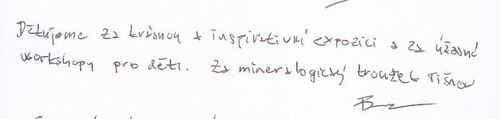 Děkujeme za krásnou a inspirativní expozici a za úžasné
workshopy pro děti. Za mineralogický kroužek Tišnov